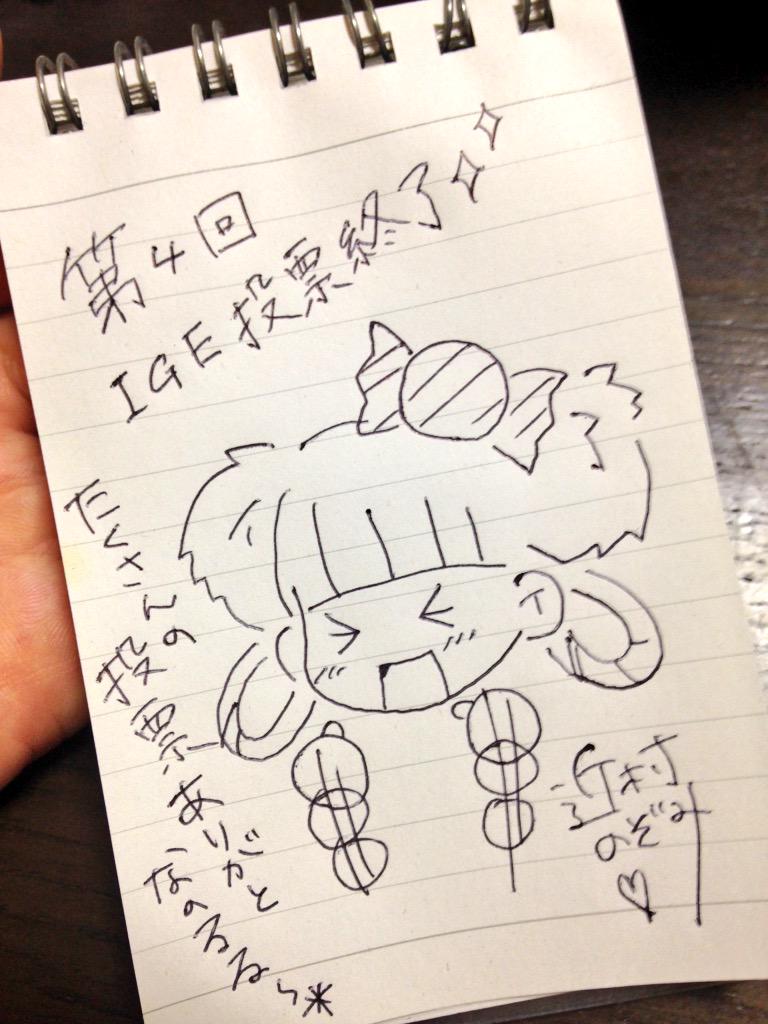 第4回
IGE投票終了
たくさんの
投票ありがと
なのるるっ*
近村
のぞみ